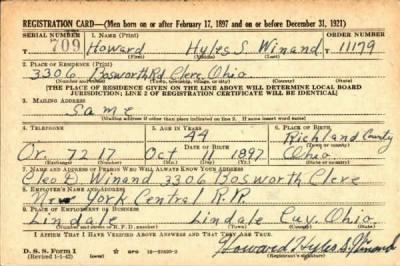 REGISTRATION CARD—(Men born on or after February 17, 1897 and on or before December 31, 1921)
SERIAL NUMBER 1. NAME (Print) ORDER NUMBER
T 709 Howard Hyles S. Winand T 11179
(First) (Middle) (Last)
2. PLACE OF RESIDENCE (Print)
3306 Bosworth Rd Cleve. Ohio
(Number and street) (Town, township, village, or city) (County) (State)
[THE PLACE OF RESIDENCE GIVEN ON THE LINE ABOVE WILL DETERMINE LOCAL BOARD
JURISDICTION; LINE 2 OF REGISTRATION CERTIFICATE WILL BE IDENTICAL]
3. MAILING ADDRESS
Same
[Mailing address if other than place indicated on line 2. If same insert word same]
4. TELEPHONE 5. AGE IN YEARS 6. PLACE OF BIRTH
44 Richland County
DATE OF BIRTH (Town or county)
Or. 7217 Oct 11 1897 Ohio
(Exchange) (Number) (Mo.) (Day) (Yr.) (State or country)
7. NAME AND ADDRESS OF PERSON WHO WILL ALWAYS KNOW YOUR ADDRESS
E. Winand 3306 Bosworth Cleve
8. EMPLOYER'S NAME AND ADDRESS
New York Central R.R.
9. PLACE OF EMPLOYMENT OR BUSINESS
Lindale Lindale Cuy. Ohio
(Number and street or R. F. D. number) (Town) (County) (State)
I AFFIRM THAT I HAVE VERIFIED ABOVE ANSWERS AND THAT THEY ARE TRUE.
D. S. S. Form 1
(Revised 1-1-42) (over) Howard Hyles S. Winand
(Registrant's signature)